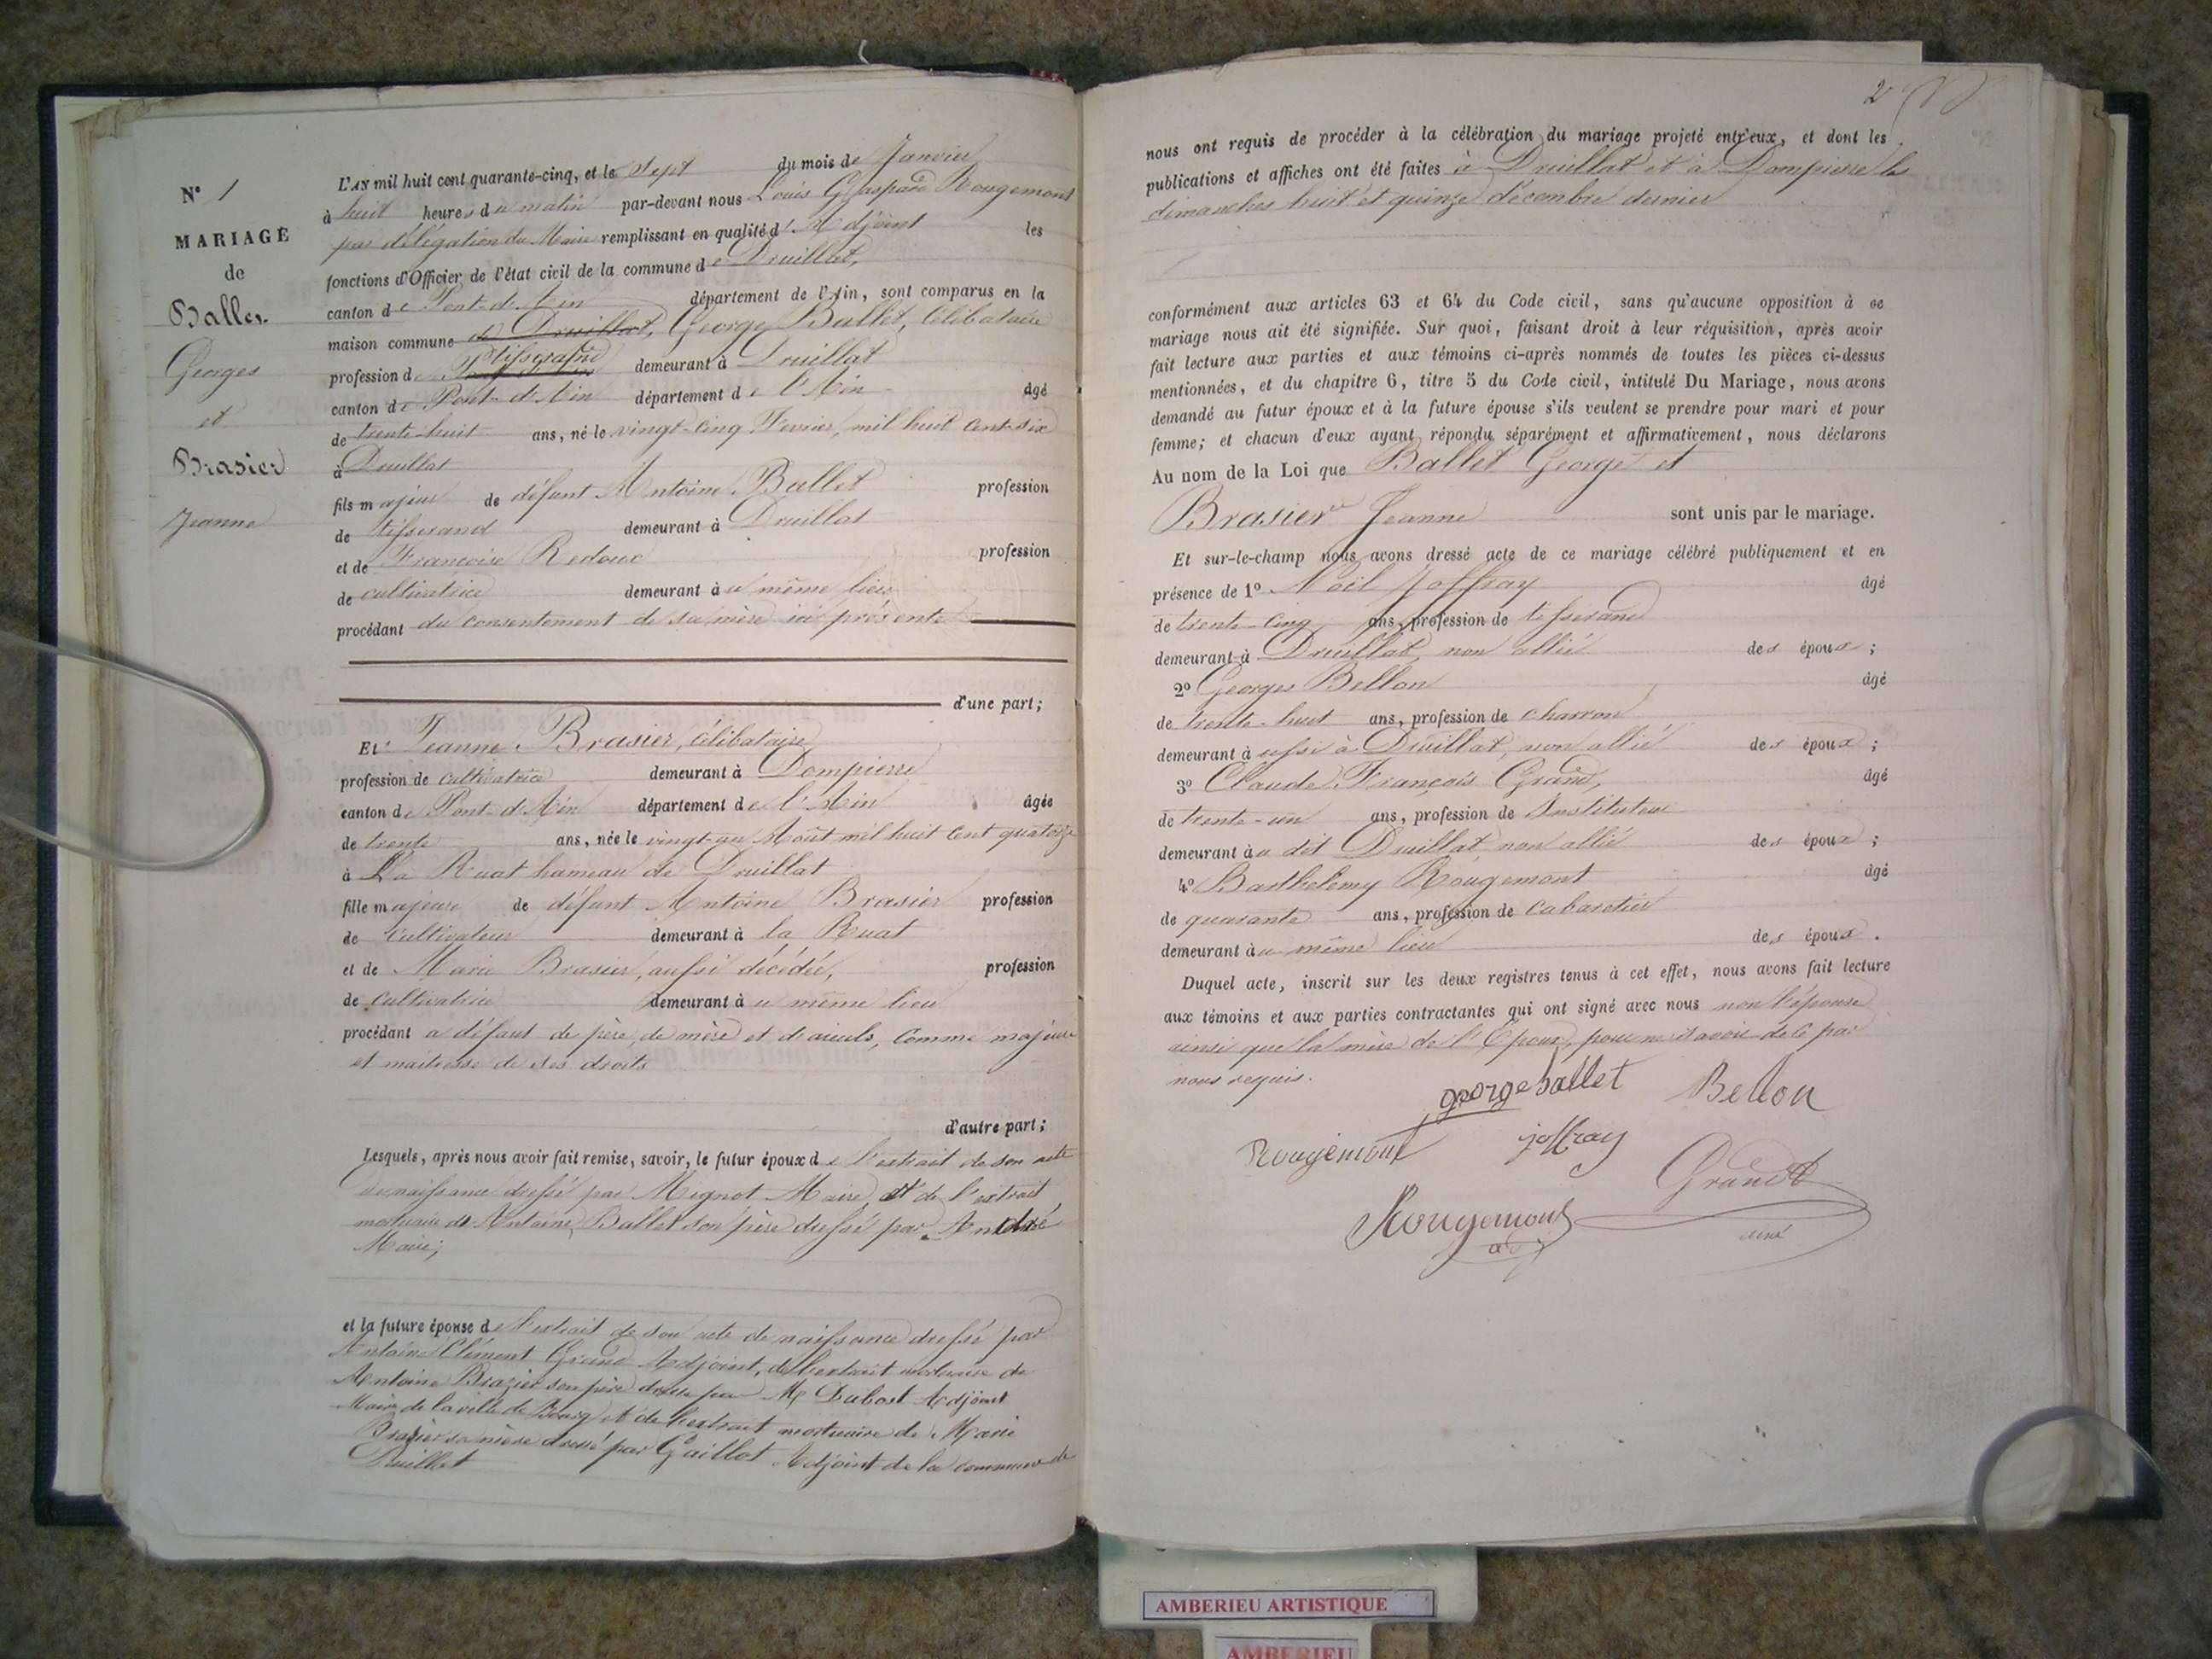 N° 1
MARIAGE
de
Ballet
Georges
et
Brasier
Jeanne
L'AN mil huit cent quarante-cinq, et le Sept du mois de Janvier
à huit heures du matin par-devant nous Louis Gaspard Rougemont
par délégation du Maire remplissant en qualité d'Adjoint les
fonctions d'Officier de l'état civil de la commune de Druillat,
canton de Pont-d'Ain département de l'Ain, sont comparus en la
maison commune de Druillat, George Ballet, Célibataire
profession de tisserand demeurant à Druillat
canton de Pont-d'Ain département de l'Ain âgé
de trente-huit ans, né le vingt-cinq Février, mil huit cent six
à Druillat
fils majeur de défunt Antoine Ballet profession
de tisserand demeurant à Druillat
et de Françoise Redoux profession
de cultivatrice demeurant au même lieu
procédant du consentement de sa mère ici présente
d'une part;
Et Jeanne Brasier, célibataire
profession de cultivatrice demeurant à Dompierre
canton de Pont-d'Ain département de l'Ain âgée
de trente ans, née le vingt-un Août mil huit cent quatorze
à La Ruat hameau de Druillat
fille majeure de défunt Antoine Brasier profession
de Cultivateur demeurant à la Ruat
et de Marie Brasier, aussi décédée, profession
de Cultivatrice demeurant au même lieu
procédant a défaut de père, de mère et d'aïeuls, comme majeure
et maîtresse de ses droits
d'autre part;
Lesquels, après nous avoir fait remise, savoir, le futur époux de l'extrait de son acte
de naissance dressé par Mignot Maire, et de l'extrait
mortuaire de Antoine Ballet son père dressé par André
Maire;
et la future épouse de l'extrait de son acte de naissance dressé par
Antoine Clément Grand Adjoint, de l'extrait mortuaire de
Antoine Brazier son père dressé par M Dubost Adjoint
Maire de la ville de Bourg et de l'extrait mortuaire de Marie
Brasier sa mère dressé par Gaillot Adjoint de la commune de
Druillat
2
nous ont requis de procéder à la célébration du mariage projeté entr'eux, et dont les
publications et affiches ont été faites à Druillat et à Dompierre les
dimanches huit et quinze décembre dernier
conformément aux articles 63 et 64 du Code civil, sans qu'aucune opposition à ce
mariage nous ait été signifiée. Sur quoi, faisant droit à leur réquisition, après avoir
fait lecture aux parties et aux témoins ci-après nommés de toutes les pièces ci-dessus
mentionnées, et du chapitre 6, titre 5 du Code civil, intitulé Du Mariage, nous avons
demandé au futur époux et à la future épouse s'ils veulent se prendre pour mari et pour
femme; et chacun d'eux ayant répondu séparément et affirmativement, nous déclarons
Au nom de la Loi que Ballet George et
Brasier Jeanne sont unis par le mariage.
Et sur-le-champ nous avons dressé acte de ce mariage célébré publiquement et en
présence de 1° Noël Joffray âgé
de trente-cinq ans, profession de tisserand
demeurant à Druillat, non allié des époux;
2° Georges Bellon âgé
de trente-huit ans, profession de charron
demeurant aussi à Druillat, non allié des époux;
3° Claude François Grand, âgé
de trente-un ans, profession de Instituteur
demeurant au dit Druillat non allié des époux;
4° Barthélemy Rougemont âgé
de quarante ans, profession de cabaretier
demeurant au même lieu des époux.
Duquel acte, inscrit sur les deux registres tenus à cet effet, nous avons fait lecture
aux témoins et aux parties contractantes qui ont signé avec nous non l'épouse
ainsi que la mère de l'Epoux, pour ne savoir de ce par
nous requis.
george ballet Bellon
Rougemont joffray
Grand
Rougemont
adj
AMBERIEU ARTISTIQUE
AMBERIEU